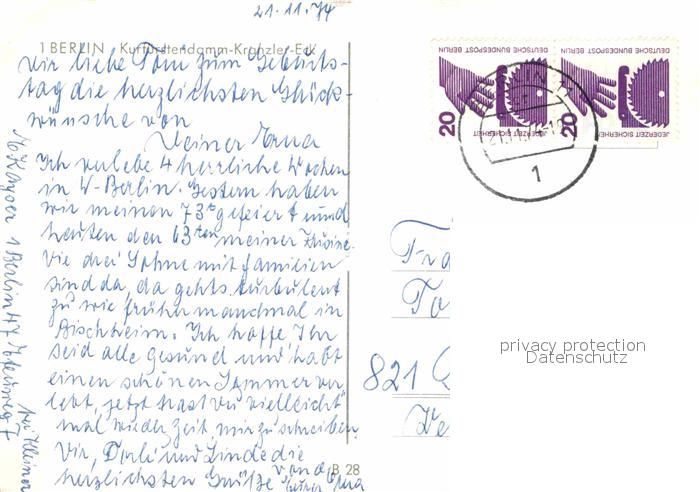 21.11.74
1 BERLIN Kurfürstendamm-Kranzler-Eck
Dir liebe Tom zum Geburts-
tag die herzlichsten Glück-
wünsche von
Deiner Erna
Ich verlebe 4 herrliche Wochen
in W-Berlin. Gestern haben
wir meinen 73ten gefeiert und
heute den 63ten meiner
Die drei Söhne mit Familien
sind da, da gehts turbulent
zu wie früher manchmal in
Bischheim. Ich hoffe, Ihr
seid alle gesund und habt
einen schönen Sommer ver
lebt, jetzt hast Du vielleicht
mal wieder Zeit, mir zu schreiben,
Dir, und Linde die
herzlichsten Grüße von
Eurer Erna
B 28
1 Berlin 47
bei Kleiner
DEUTSCHE BUNDESPOST BERLIN
JEDERZEIT SICHERHEIT
20
DEUTSCHE BUNDESPOST BERLIN
JEDERZEIT SICHERHEIT
20
1
821
privacy protection
Datenschutz